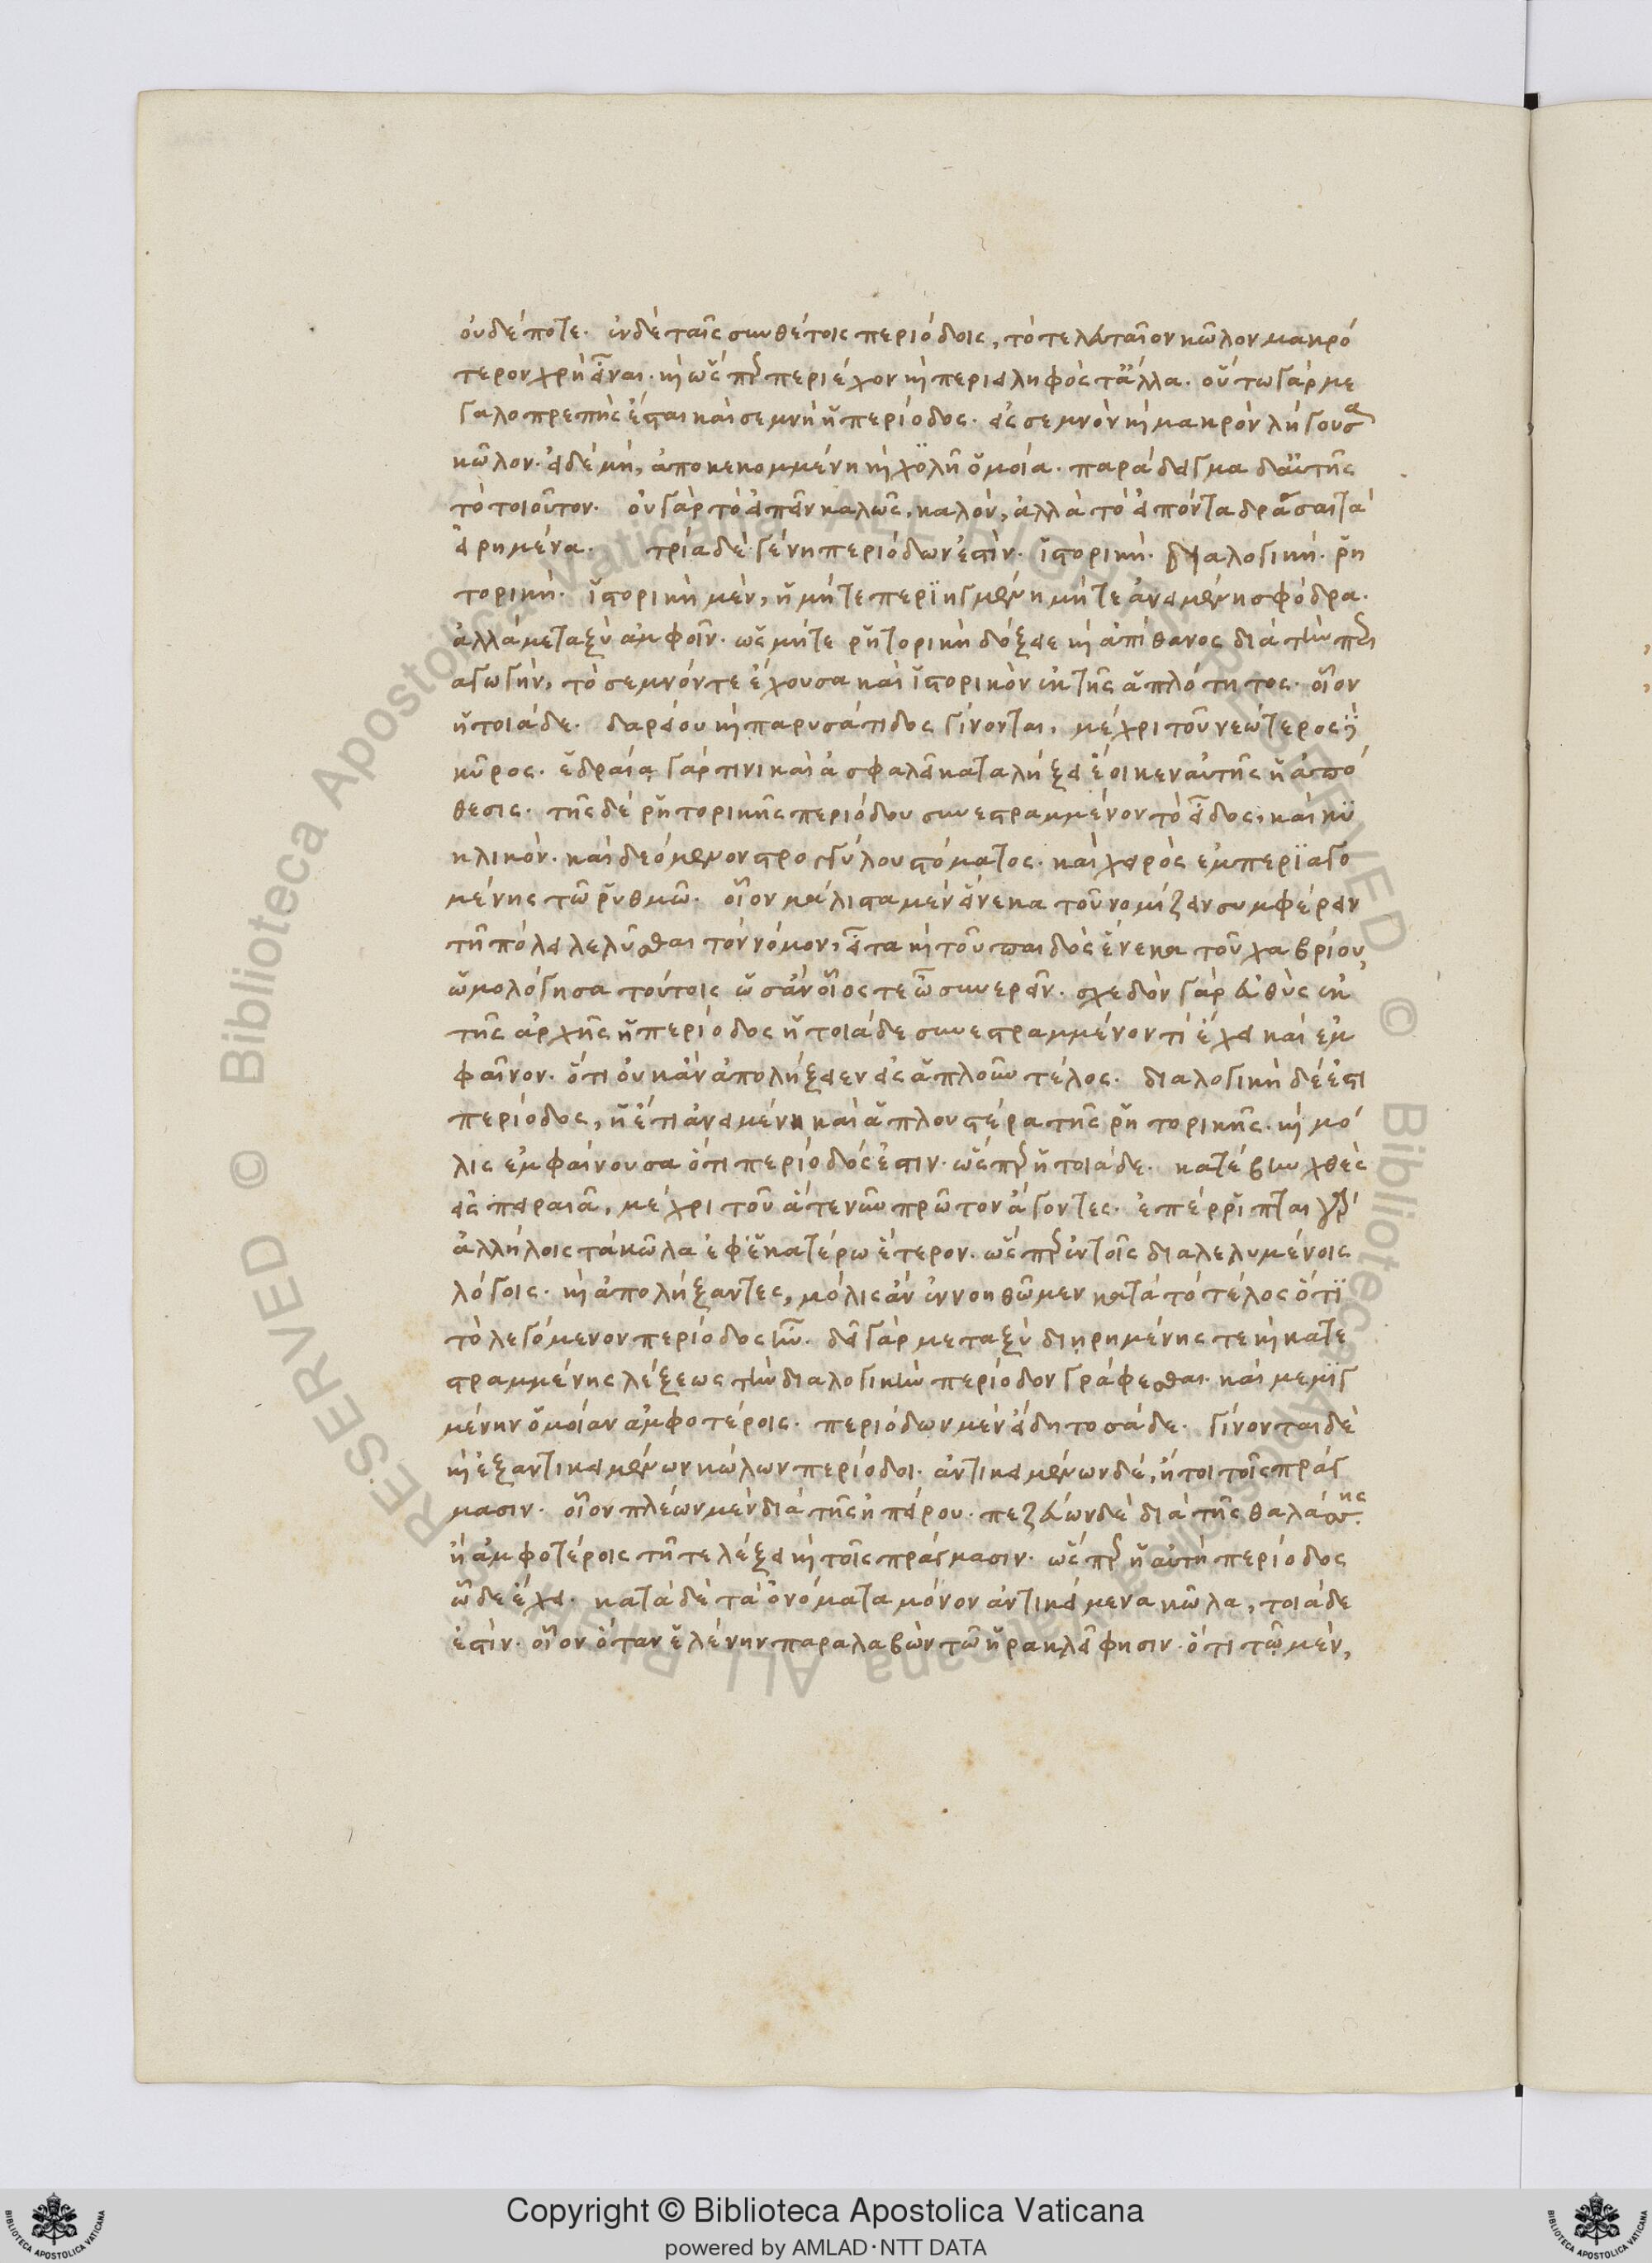 οὐδέποτε. ἐν δὲ ταῖς συνθέτοις περιόδοις, τὸ τελευταῖον κῶλον μακρό
τερον χρὴ εἶναι. καὶ ὥσπερ περιέχον καὶ περιειληφὸς τἄλλα. οὕτω γὰρ με
γαλοπρεπὴς ἔσται καὶ σεμνὴ ἡ περίοδος. εἰς σεμνὸν καὶ μακρὸν λήγουσα
κῶλον. εἰ δὲ μή, ἀποκεκομμένη καὶ χωλῇ ὁμοία. παράδειγμα δ' αὐτῆς
τὸ τοιοῦτον. οὐ γὰρ τὸ εἰπεῖν καλῶς, καλόν, ἀλλὰ τὸ εἰπόντα δρᾶσαι τὰ
εἰρημένα. τρία δὲ γένη περιόδων ἐστίν. ἱστορική. διαλογική. ῥη
τορική. ἱστορικὴ μέν, ἡ μήτε περιηγμένη μήτε ἀνειμένη σφόδρα.
ἀλλὰ μεταξὺ ἀμφοῖν. ὡς μήτε ῥητορικὴ δόξειε καὶ ἀπίθανος διὰ τὴν περι
αγωγήν, τὸ σεμνόν τε ἔχουσα καὶ ἱστορικὸν ἐκ τῆς ἁπλότητος. οἷον
ἡ τοιάδε. δαρείου καὶ παρυσάτιδος γίνονται, μέχρι τοῦ νεώτερος
κῦρος. ἑδραία γάρ τινι καὶ ἀσφαλεῖ καταλήξει ἔοικεν αὐτῆς ἡ ἀπό
θεσις. τῆς δὲ ῥητορικῆς περιόδου συνεστραμμένον τὸ εἶδος, καὶ κυ
κλικόν. καὶ δεόμενον στρογγύλου στόματος. καὶ χειρὸς συμπεριαγο
μένης τῷ ῥυθμῷ. οἷον μάλιστα μὲν εἵνεκα τοῦ νομίζειν συμφέρειν
τῇ πόλει λελύσθαι τὸν νόμον, εἶτα καὶ τοῦ παιδὸς ἕνεκα τοῦ χαβρίου,
ὡμολόγησα τούτοις ὡς ἂν οἷός τε ὦ συνερεῖν. σχεδὸν γὰρ εὐθὺς ἐκ
τῆς ἀρχῆς ἡ περίοδος ἡ τοιάδε συνεστραμμένον τι ἔχει καὶ ἐμ
φαῖνον. ὅτι οὐκ ἂν ἀπολήξειεν εἰς ἁπλοῦν τέλος. διαλογικὴ δέ ἐστι
περίοδος, ἡ ἔτι ἀνειμένη καὶ ἁπλουστέρα τῆς ῥητορικῆς. καὶ μό
λις ἐμφαίνουσα ὅτι περίοδός ἐστιν. ὥσπερ ἡ τοιάδε. κατέβην χθὲς
εἰς πειραιᾶ, μέχρι τοῦ ἅτε νῦν πρῶτον ἄγοντες. ἐπέρριπται γὰρ
ἀλλήλοις τὰ κῶλα ἐφ' ἑκατέρω ἕτερον. ὥσπερ ἐν τοῖς διαλελυμένοις
λόγοις. καὶ ἀπολήξαντες, μόλις ἂν ἐννοηθῶμεν κατὰ τὸ τέλος ὅτι
τὸ λεγόμενον περίοδος ἦν. δεῖ γὰρ μεταξὺ διῃρημένης τε καὶ κατε
στραμμένης λέξεως τὴν διαλογικὴν περίοδον γράφεσθαι. καὶ μεμιγ
μένην ὁμοίαν ἀμφοτέροις. περιόδων μὲν εἴδη τοσάδε. γίνονται δὲ
καὶ ἐξ ἀντικειμένων κώλων περίοδοι. ἀντικειμένων δέ, ἤτοι τοῖς πράγ
μασιν. οἷον πλέων μὲν διὰ τῆς ἠπείρου. πεζεύων δὲ διὰ τῆς θαλάσσης.
ἢ ἀμφοτέροις τῇ τε λέξει καὶ τοῖς πράγμασιν. ὥσπερ ἡ αὐτὴ περίοδος
ὧδε ἔχει. κατὰ δὲ τὰ ὀνόματα μόνον ἀντικείμενα κῶλα, τοιάδε
ἐστίν. οἷον ὅταν ἑλένην παραλαβὼν τῷ ἡρακλεῖ φησιν. ὅτι τῷ μέν,
© Biblioteca Apostolica Vaticana ALL RIGHTS RESERVED © Biblioteca Apostolica Vaticana ALL RIGHTS RESERVED
BIBLIOTECA APOSTOLICA VATICANA
Copyright © Biblioteca Apostolica Vaticana
powered by AMLAD·NTT DATA
BIBLIOTECA APOSTOLICA VATICANA